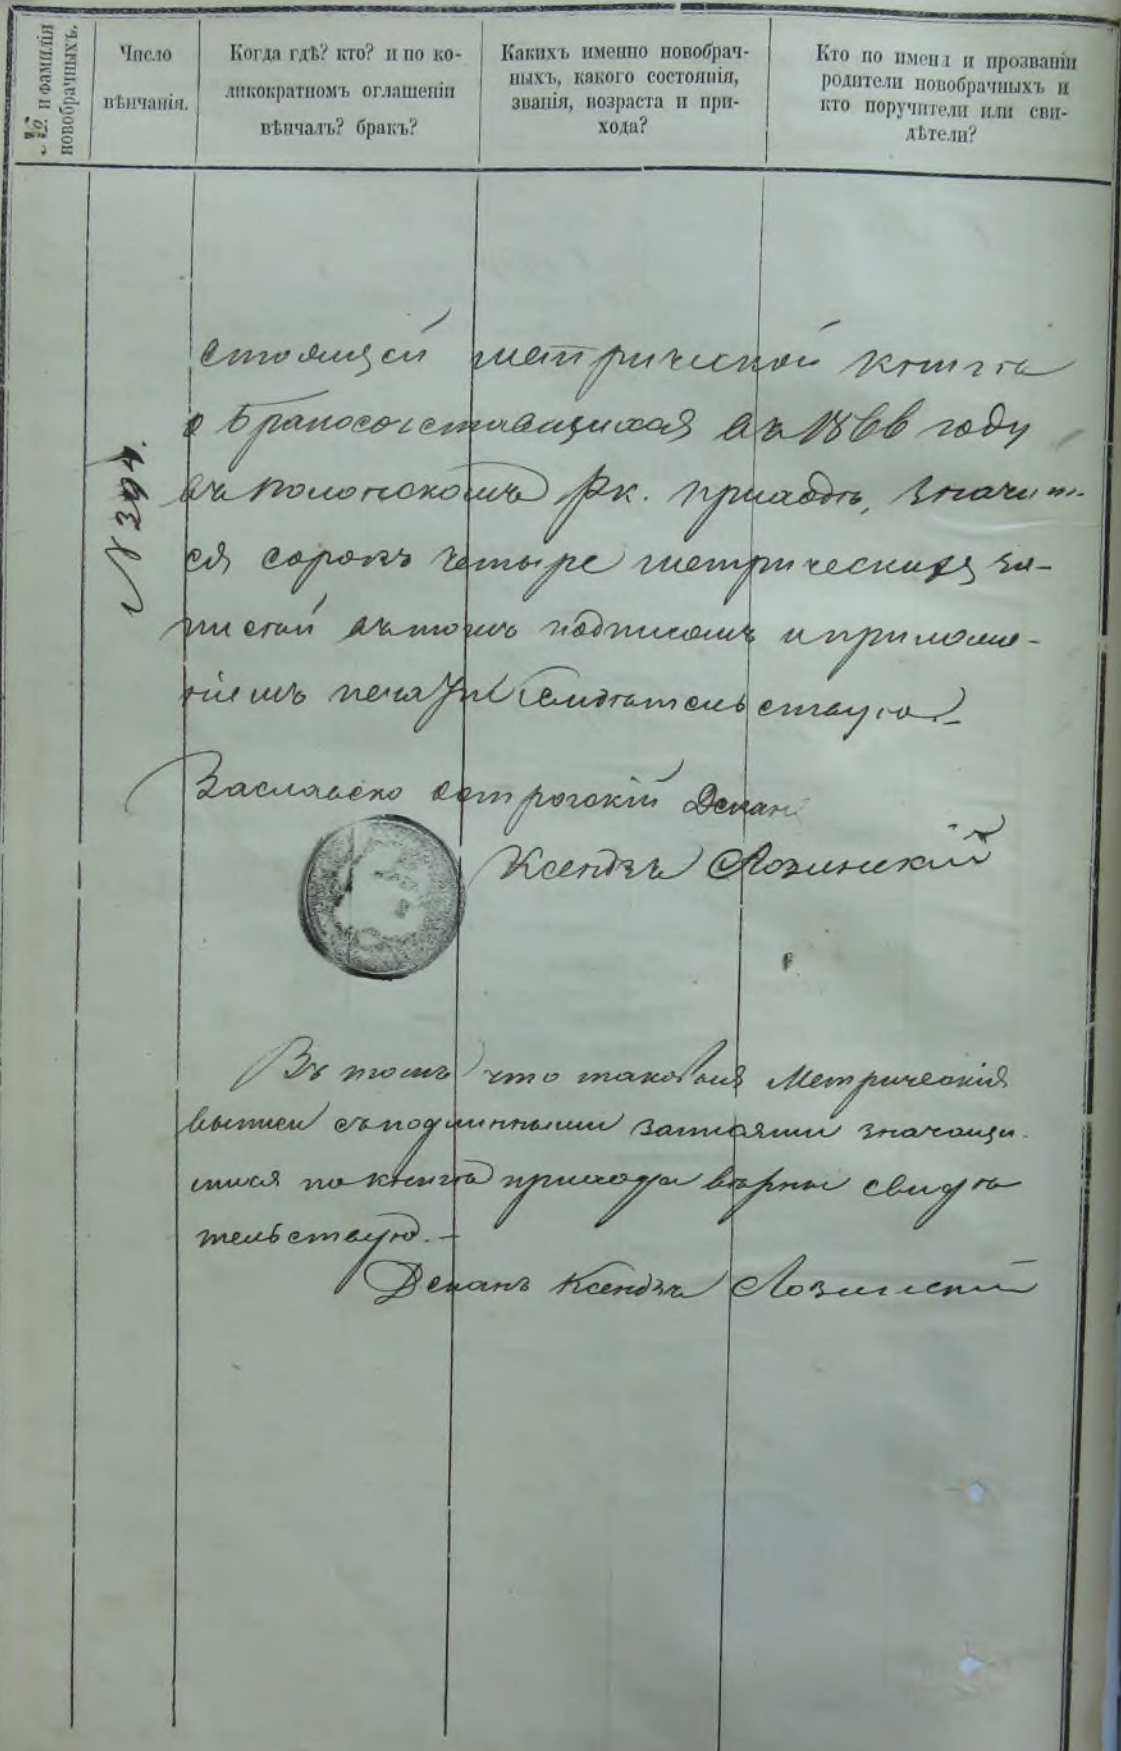 № и фамилія
новобрачныхъ.
Число
вѣнчанія.
Когда гдѣ? кто? и по ко-
ликократномъ оглашеніи
вѣнчалъ? бракъ?
Какихъ именно новобрач-
ныхъ, какого состоянія,
званія, возраста и при-
хода?
Кто по имени и прозваніи
родители новобрачныхъ и
кто поручители или сви-
дѣтели?
стоящей метрической книгѣ
о бракосочетавшихся въ 1866 году
въ Полонскомъ рк. приходѣ, значит-
ся сорокъ четыре метрическихъ за-
писей въ томъ подписомъ и приложе-
ніемъ печати свидѣтельствую.
№ 394.
Заславско Острогскій Декан
Ксендзъ Лозинскій
Въ томъ что таковыя Метрическія
выписи съ подлинными записями значащи-
мися по книгѣ прихода вѣрны свидѣ
тельствую.
Деканъ Ксендзъ Лозинскій